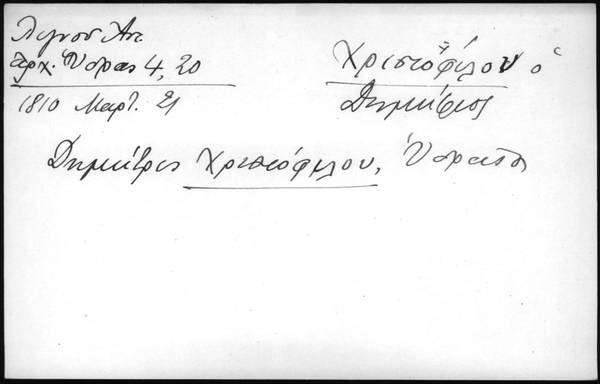 Λιγνού Αντ
Ἀρχ. Ὕδρας 4, 20
1810 Μαρτ. 21
Χριστοφίλου ὁ
Δημήτριος
Δημήτρις Χριστόφιλου, Ὑδραῖος